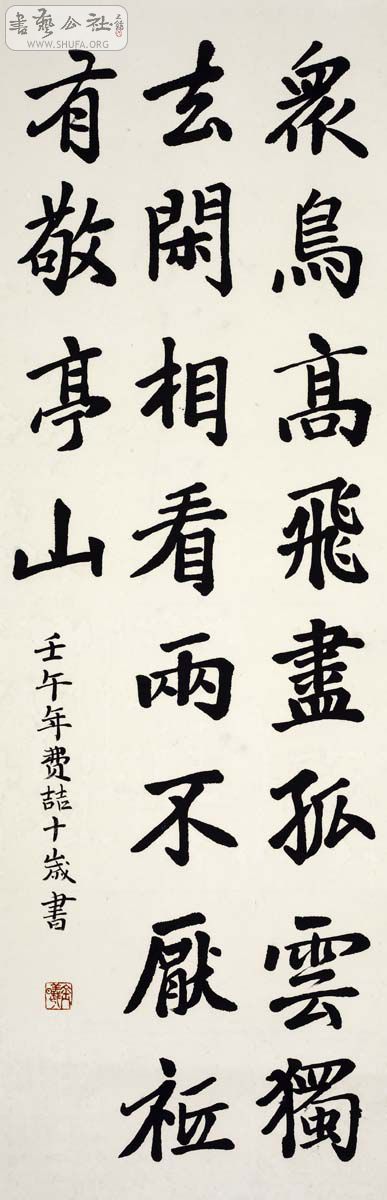 書藝公社
WWW.SHUFA.ORG
衆鳥高飛盡孤雲獨
去閑相看兩不厭祗
有敬亭山
壬午年费喆十歲書